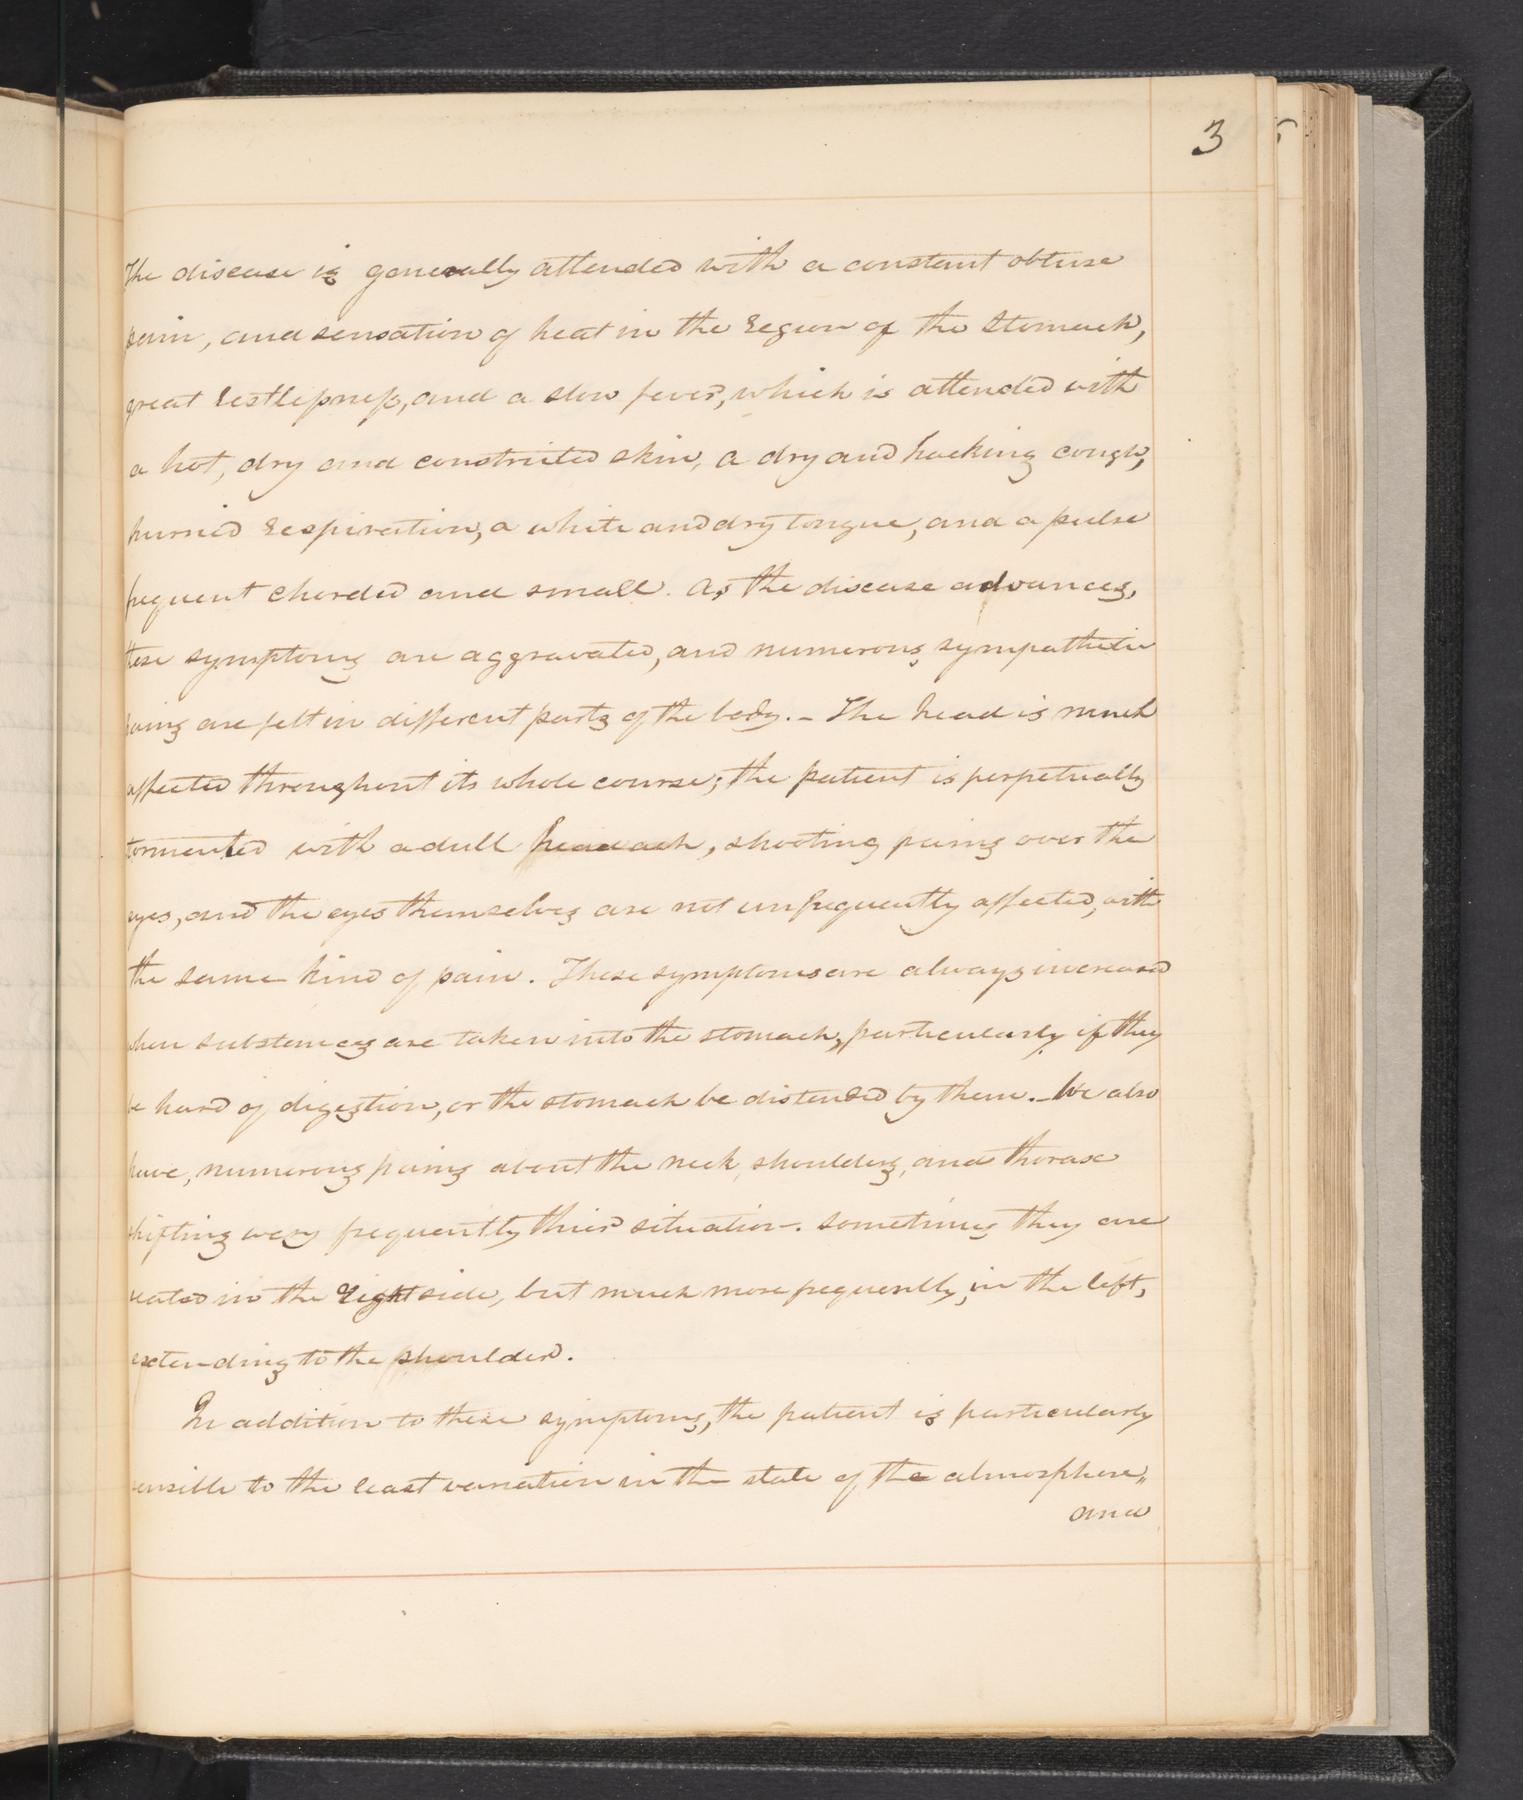 3
The disease is generally attended with a constant obtuse
pain, and sensation of heat in the region of the Stomach,
great restlessness, and a slow fever, which is attended with
a hot, dry and constricted skin, a dry and hacking cough,
hurried respiration, a white and dry tongue, and a pulse
frequent chorded and small. As the disease advances,
these symptoms are aggravated, and numerous sympathetic
pains are felt in different parts of the body. - The head is much
affected throughout its whole course; the patient is perpetually
tormented with a dull headach, shooting pains over the
eyes, and the eyes themselves are not unfrequently affected, with
the same kind of pain. These symptoms are always increased
when substances are taken into the stomach, particularly if they
be hard of digestion, or the stomach be distended by them. - We also
have, numerous pains about the neck, shoulders, and thorax
shifting very frequently thier situation. sometimes they are
seated in the right side, but much more frequently, in the left,
extending to the shoulder.
In addition to these symptoms, the patient is particularly
sensible to the least variation in the state of the atmosphere,,
and